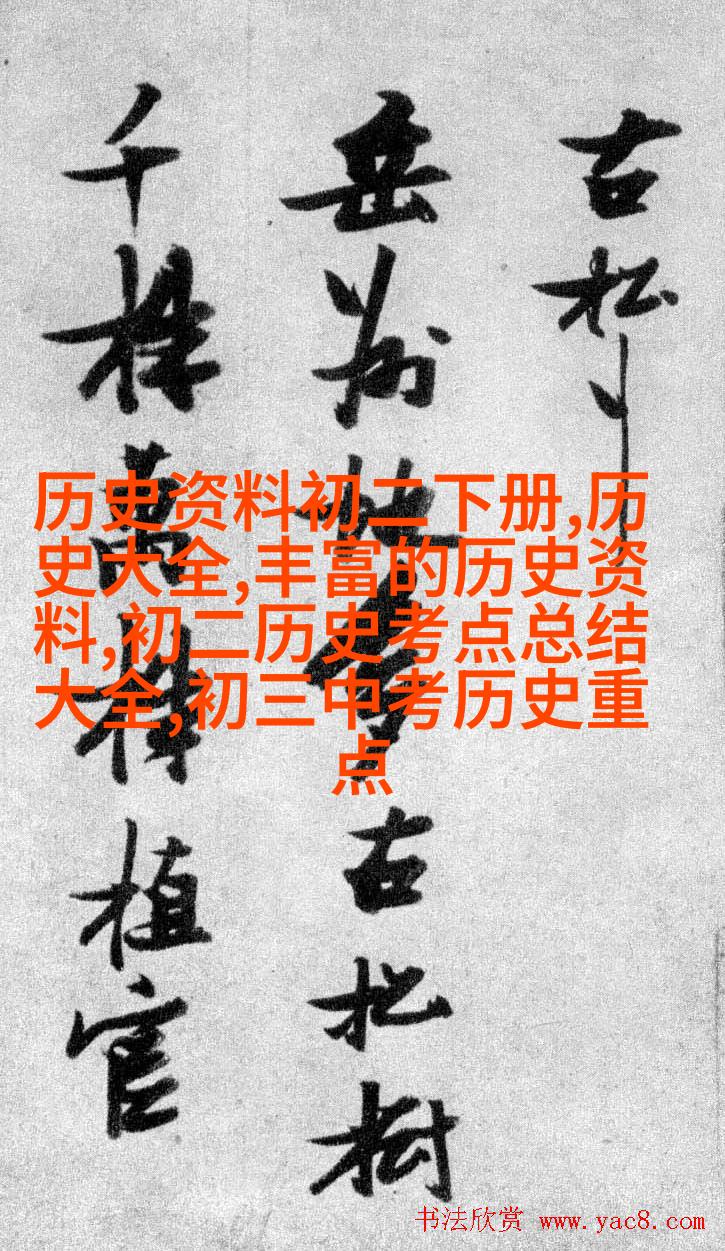 古松
岳州
古松樹
千株萬株植官
历史资料初二下册,历
史大全,丰富的历史资
料,初二历史考点总结
大全,初三中考历史重
点
书法欣赏 www.yac8.com